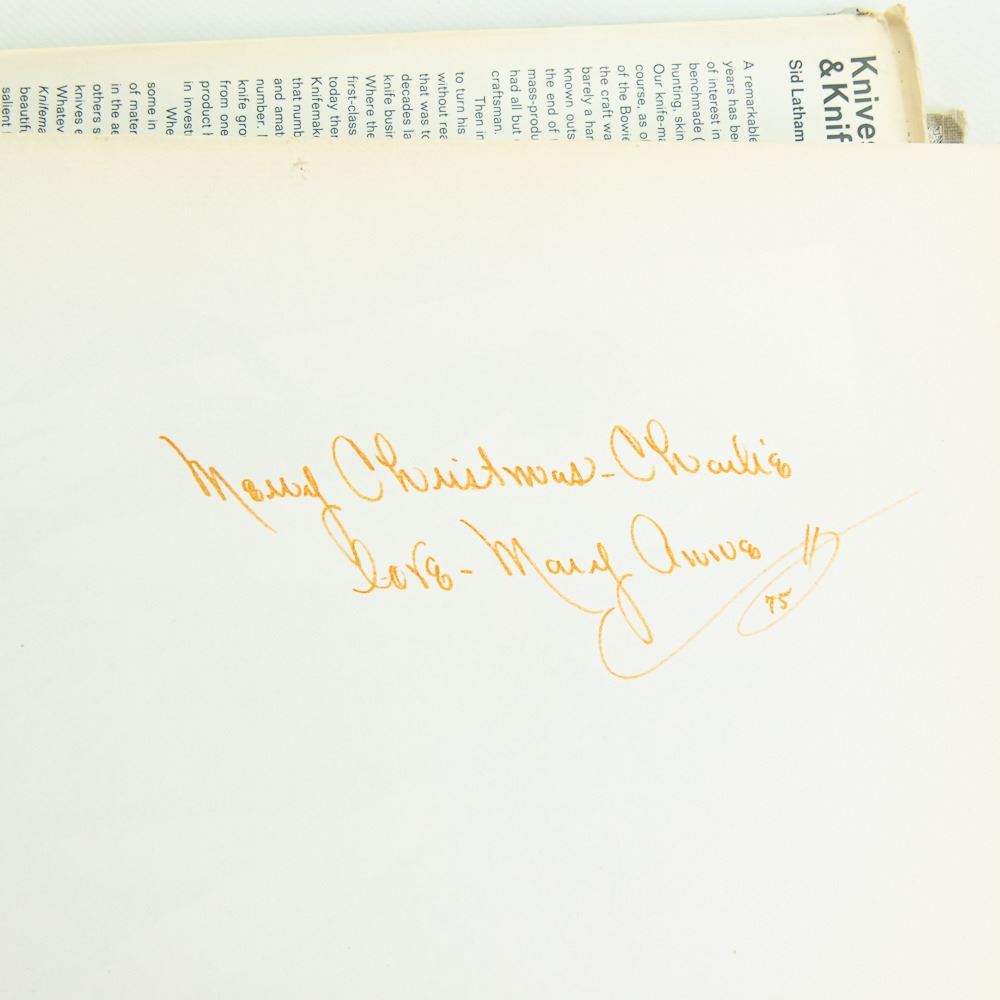 Knives
& Knif
Sid Latham
A remarkable
years has be
of interest in
benchmade (
hunting, skin
Our knife-ma
course, as ol
of the Bowie
the craft wa
barely a har
known outs
the end of
mass-produ
had all but
craftsman.
Then in
to turn his
without rea
that was to
decades la
knife busin
Where the
first-class
today ther
Knifemak
that numb
and amat
number.
knife gro
from one
product l
in investi
Whe
some in
of mater
in the ae
others s
knives
Whatev
Knifema
beautifu
salient
Merry Christmas - Charlie
Love - Mary Anne
75